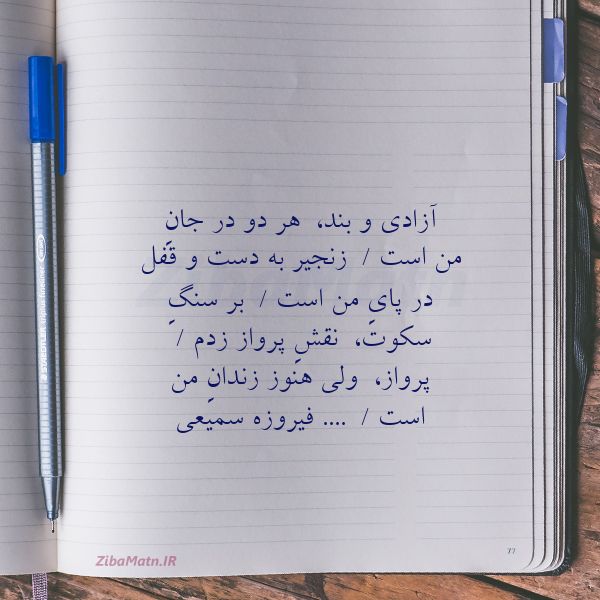 آزادی و بند، هر دو در جانِ
من است / زنجیر به دست و قفل
در پایِ من است / بر سنگِ
سکوت، نقشِ پرواز زدم /
پرواز، ولی هنوز زندانِ من
است / .... فیروزه سمیعی
ZibaMatn.IR
77